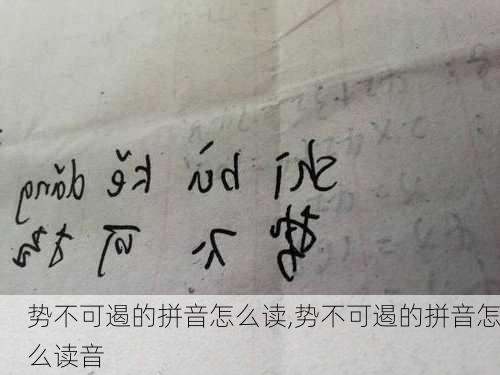 shì bù kě dǎng
势不可挡
势不可遏的拼音怎么读,势不可遏的拼音怎
么读音